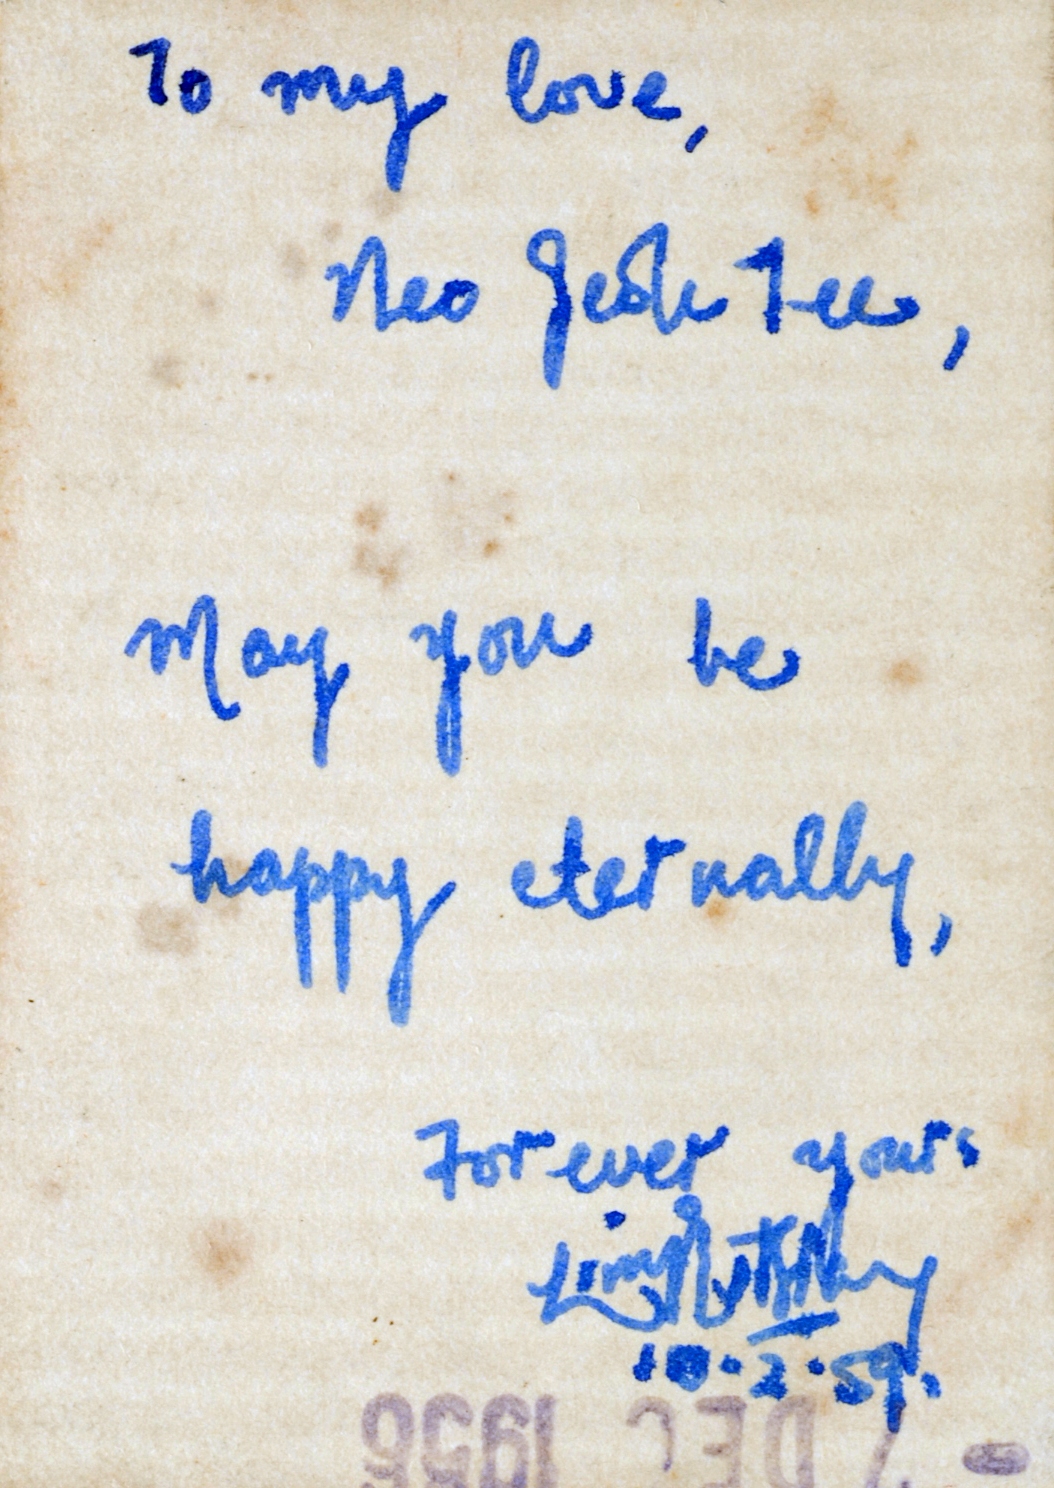 To my love,
Neo Geok Tee,
May you be
happy eternally,
Forever yours
Lim
10.2.59.
7 DEC 1956